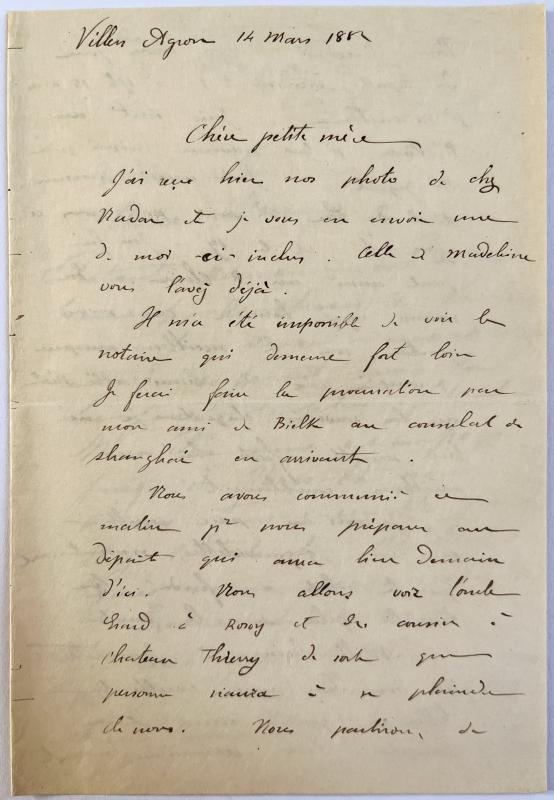 Villers Agron 14 Mars 188
Chère petite mère
J'ai reçu hier nos photo de chez
Nadar et je vous en envoie une
de moi -ci- inclus. Celle de Madeleine
vous l'avez déjà.
Il m'a été impossible de voir le
notaire qui demeure fort loin
Je ferai faire la procuration par
mon ami de Bielk au consulat de
Shanghai en arrivant.
Nous avons communié ce
matin pr nous préparer au
départ qui aura lieu demain
d'ici. Nous allons voir l'oncle
à Rosoy et des cousin à
Chateau Thierry de sorte que
personne n'aura à se plaindre
de nous. Nous partirons de